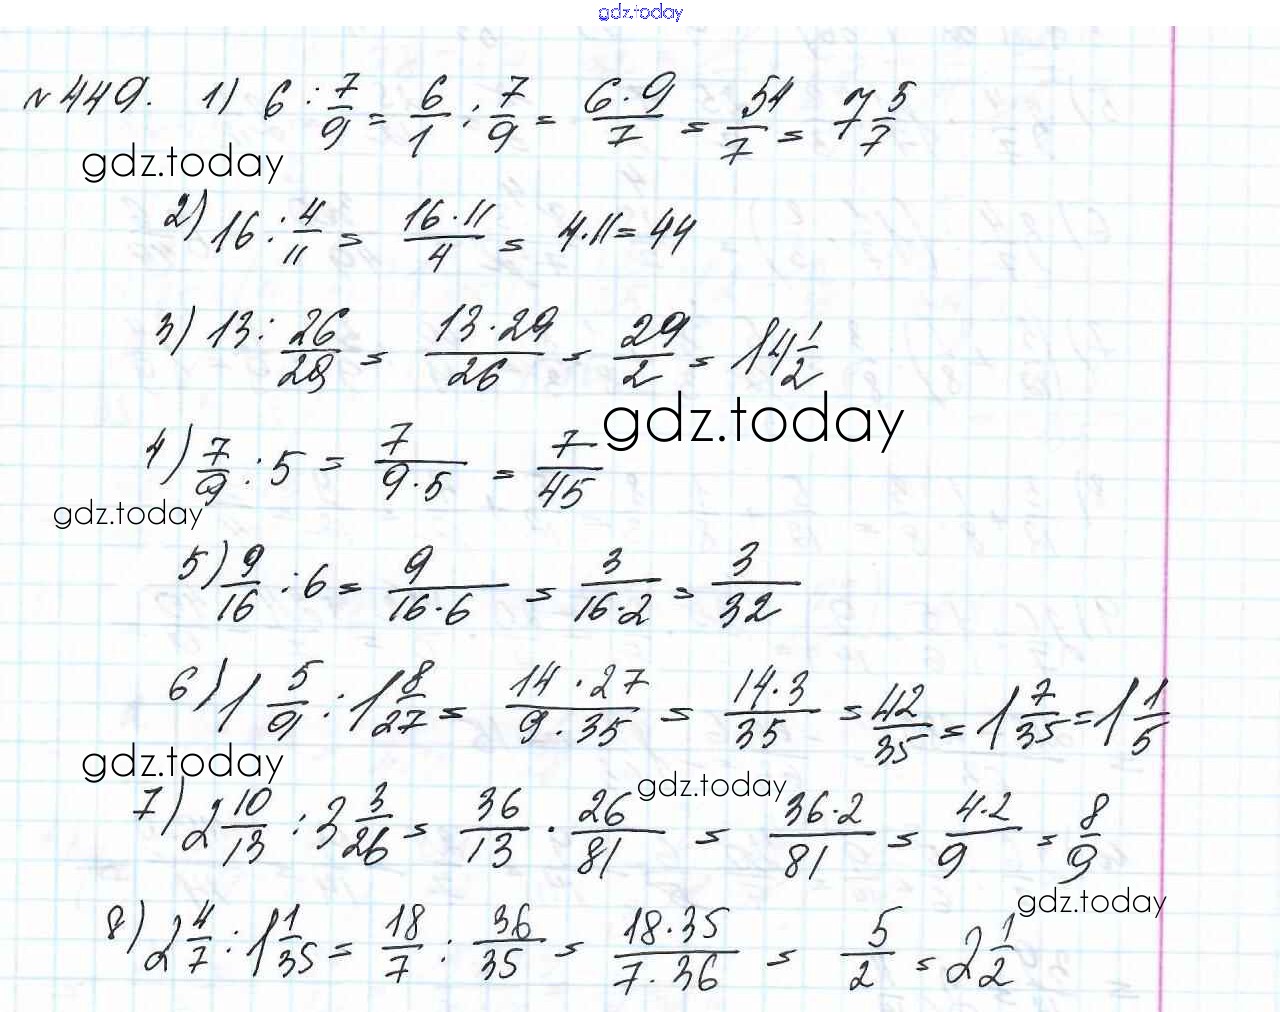 gdz.today
№ 449. 1) 6 : 7/9 = 6/1 : 7/9 = 6·9/7 = 54/7 = 7 5/7
gdz.today
2) 16 : 4/11 = 16·11/4 = 4·11 = 44
3) 13 : 26/29 = 13·29/26 = 29/2 = 14 1/2
gdz.today
4) 7/9 : 5 = 7/9·5 = 7/45
gdz.today
5) 9/16 : 6 = 9/16·6 = 3/16·2 = 3/32
6) 1 5/9 : 1 8/27 = 14·27/9·35 = 14·3/35 = 42/35 = 1 7/35 = 1 1/5
gdz.today
gdz.today
7) 2 10/13 : 3 3/26 = 36/13 · 26/81 = 36·2/81 = 4·2/9 = 8/9
gdz.today
8) 2 4/7 : 1 1/35 = 18/7 : 36/35 = 18·35/7·36 = 5/2 = 2 1/2